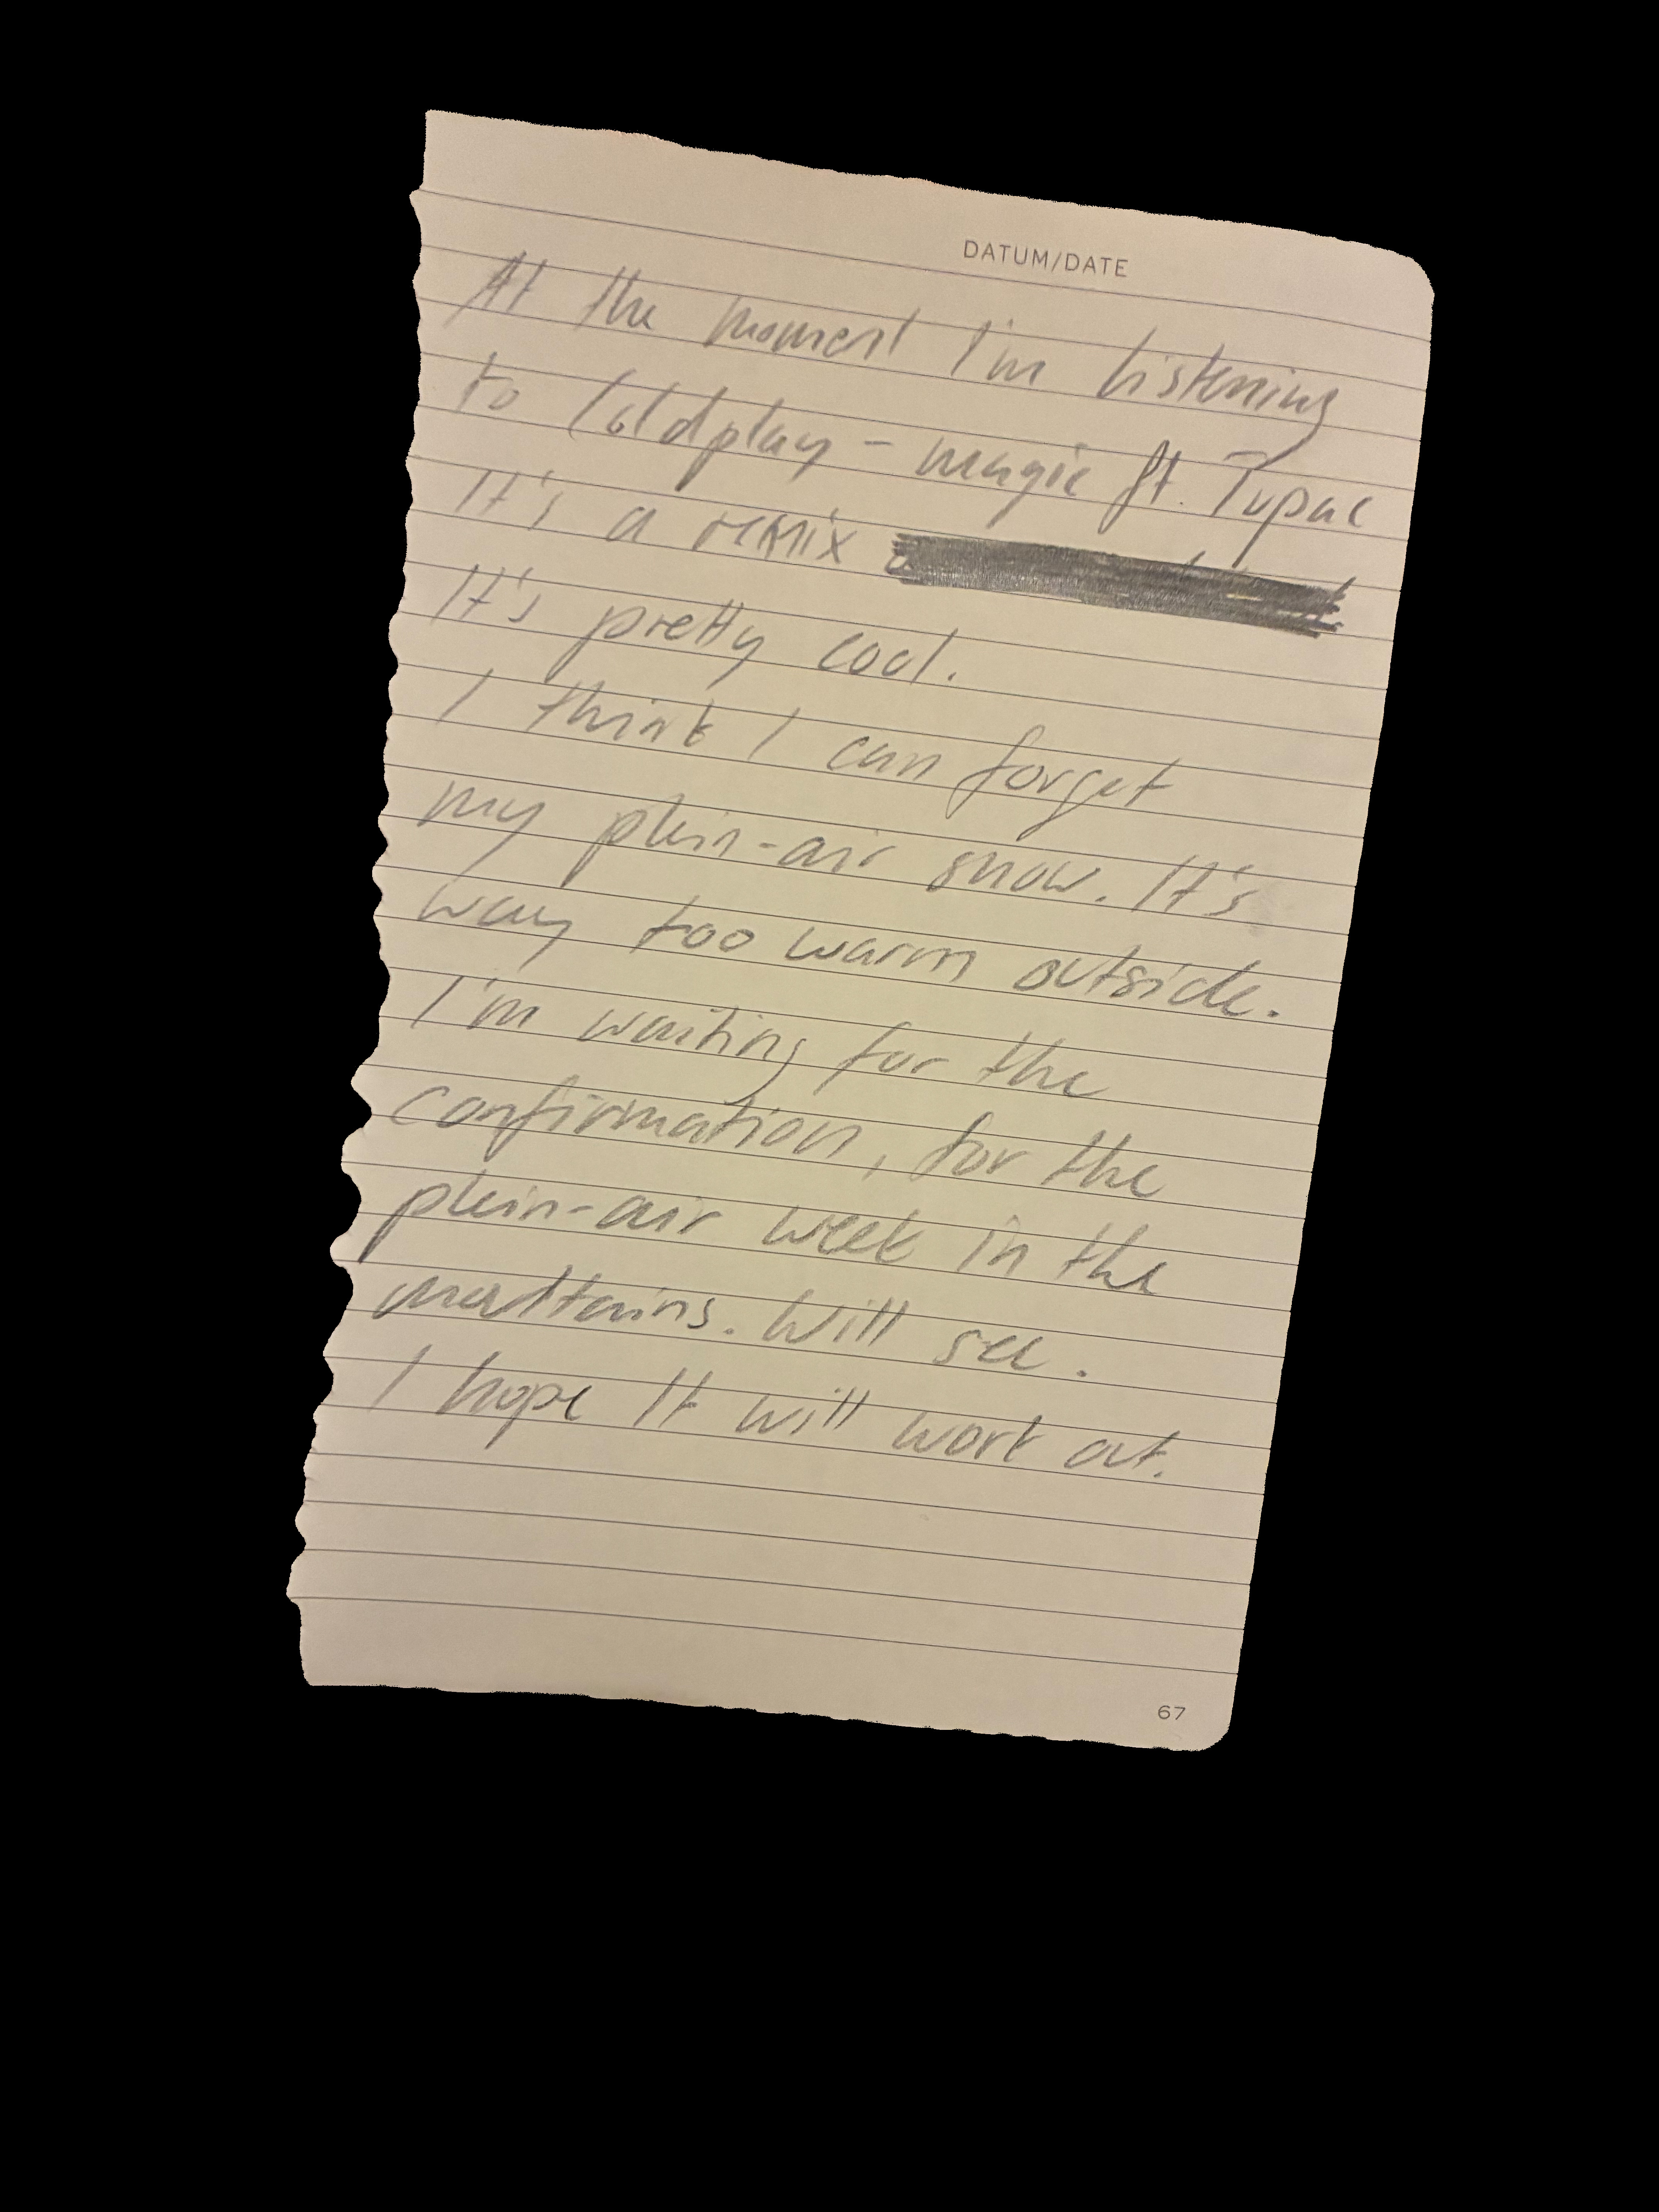 DATUM/DATE
At the moment I'm listening
to Coldplay - magic ft. Tupac
It's a remix
It's pretty cool.
I think I can forget
my plein-air snow. It's
way too warm outside.
I'm waiting for the
confirmation, for the
plein-air week in the
mountains. Will see.
I hope It will work out.
67